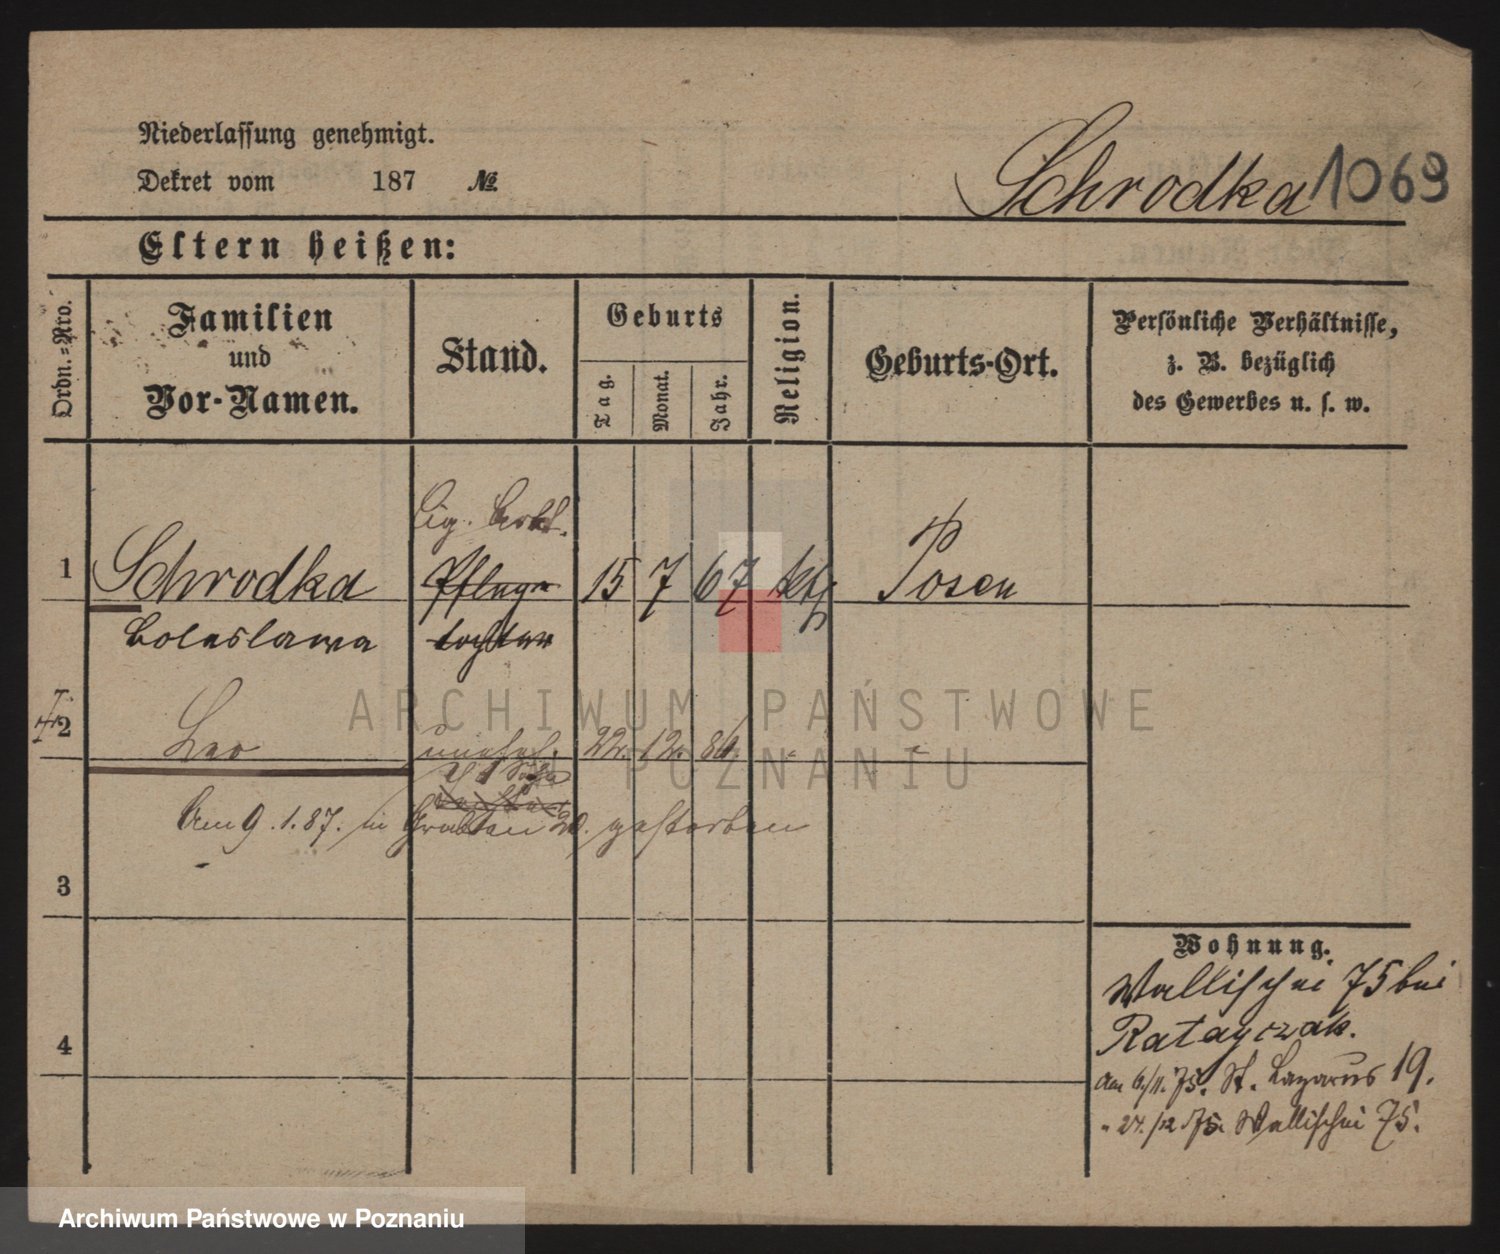 Niederlassung genehmigt.
Dekret vom 187 №
Schrodka 1069
Eltern heißen:
Ordn.-Nro.
Familien
und
Vor-Namen.
Stand.
Geburts
Tag.
Monat.
Jahr.
Religion.
Geburts-Ort.
Persönliche Verhältnisse,
z. B. bezüglich
des Gewerbes u. s. w.
1 Schrodka Pflege 15 7 67 kth Posen
Boleslawa tochter
2 Leo unehel. 22. 12. 86
Am 9.1.87. in gestorben
3
4
Wohnung.
Wallischei 75 bei
Ratayczak.
am 6/11. 75. St. Lazarus 19.
" 24./12 75. Wallischei 75.
ARCHIWUM PAŃSTWOWE
W POZNANIU
Archiwum Państwowe w Poznaniu